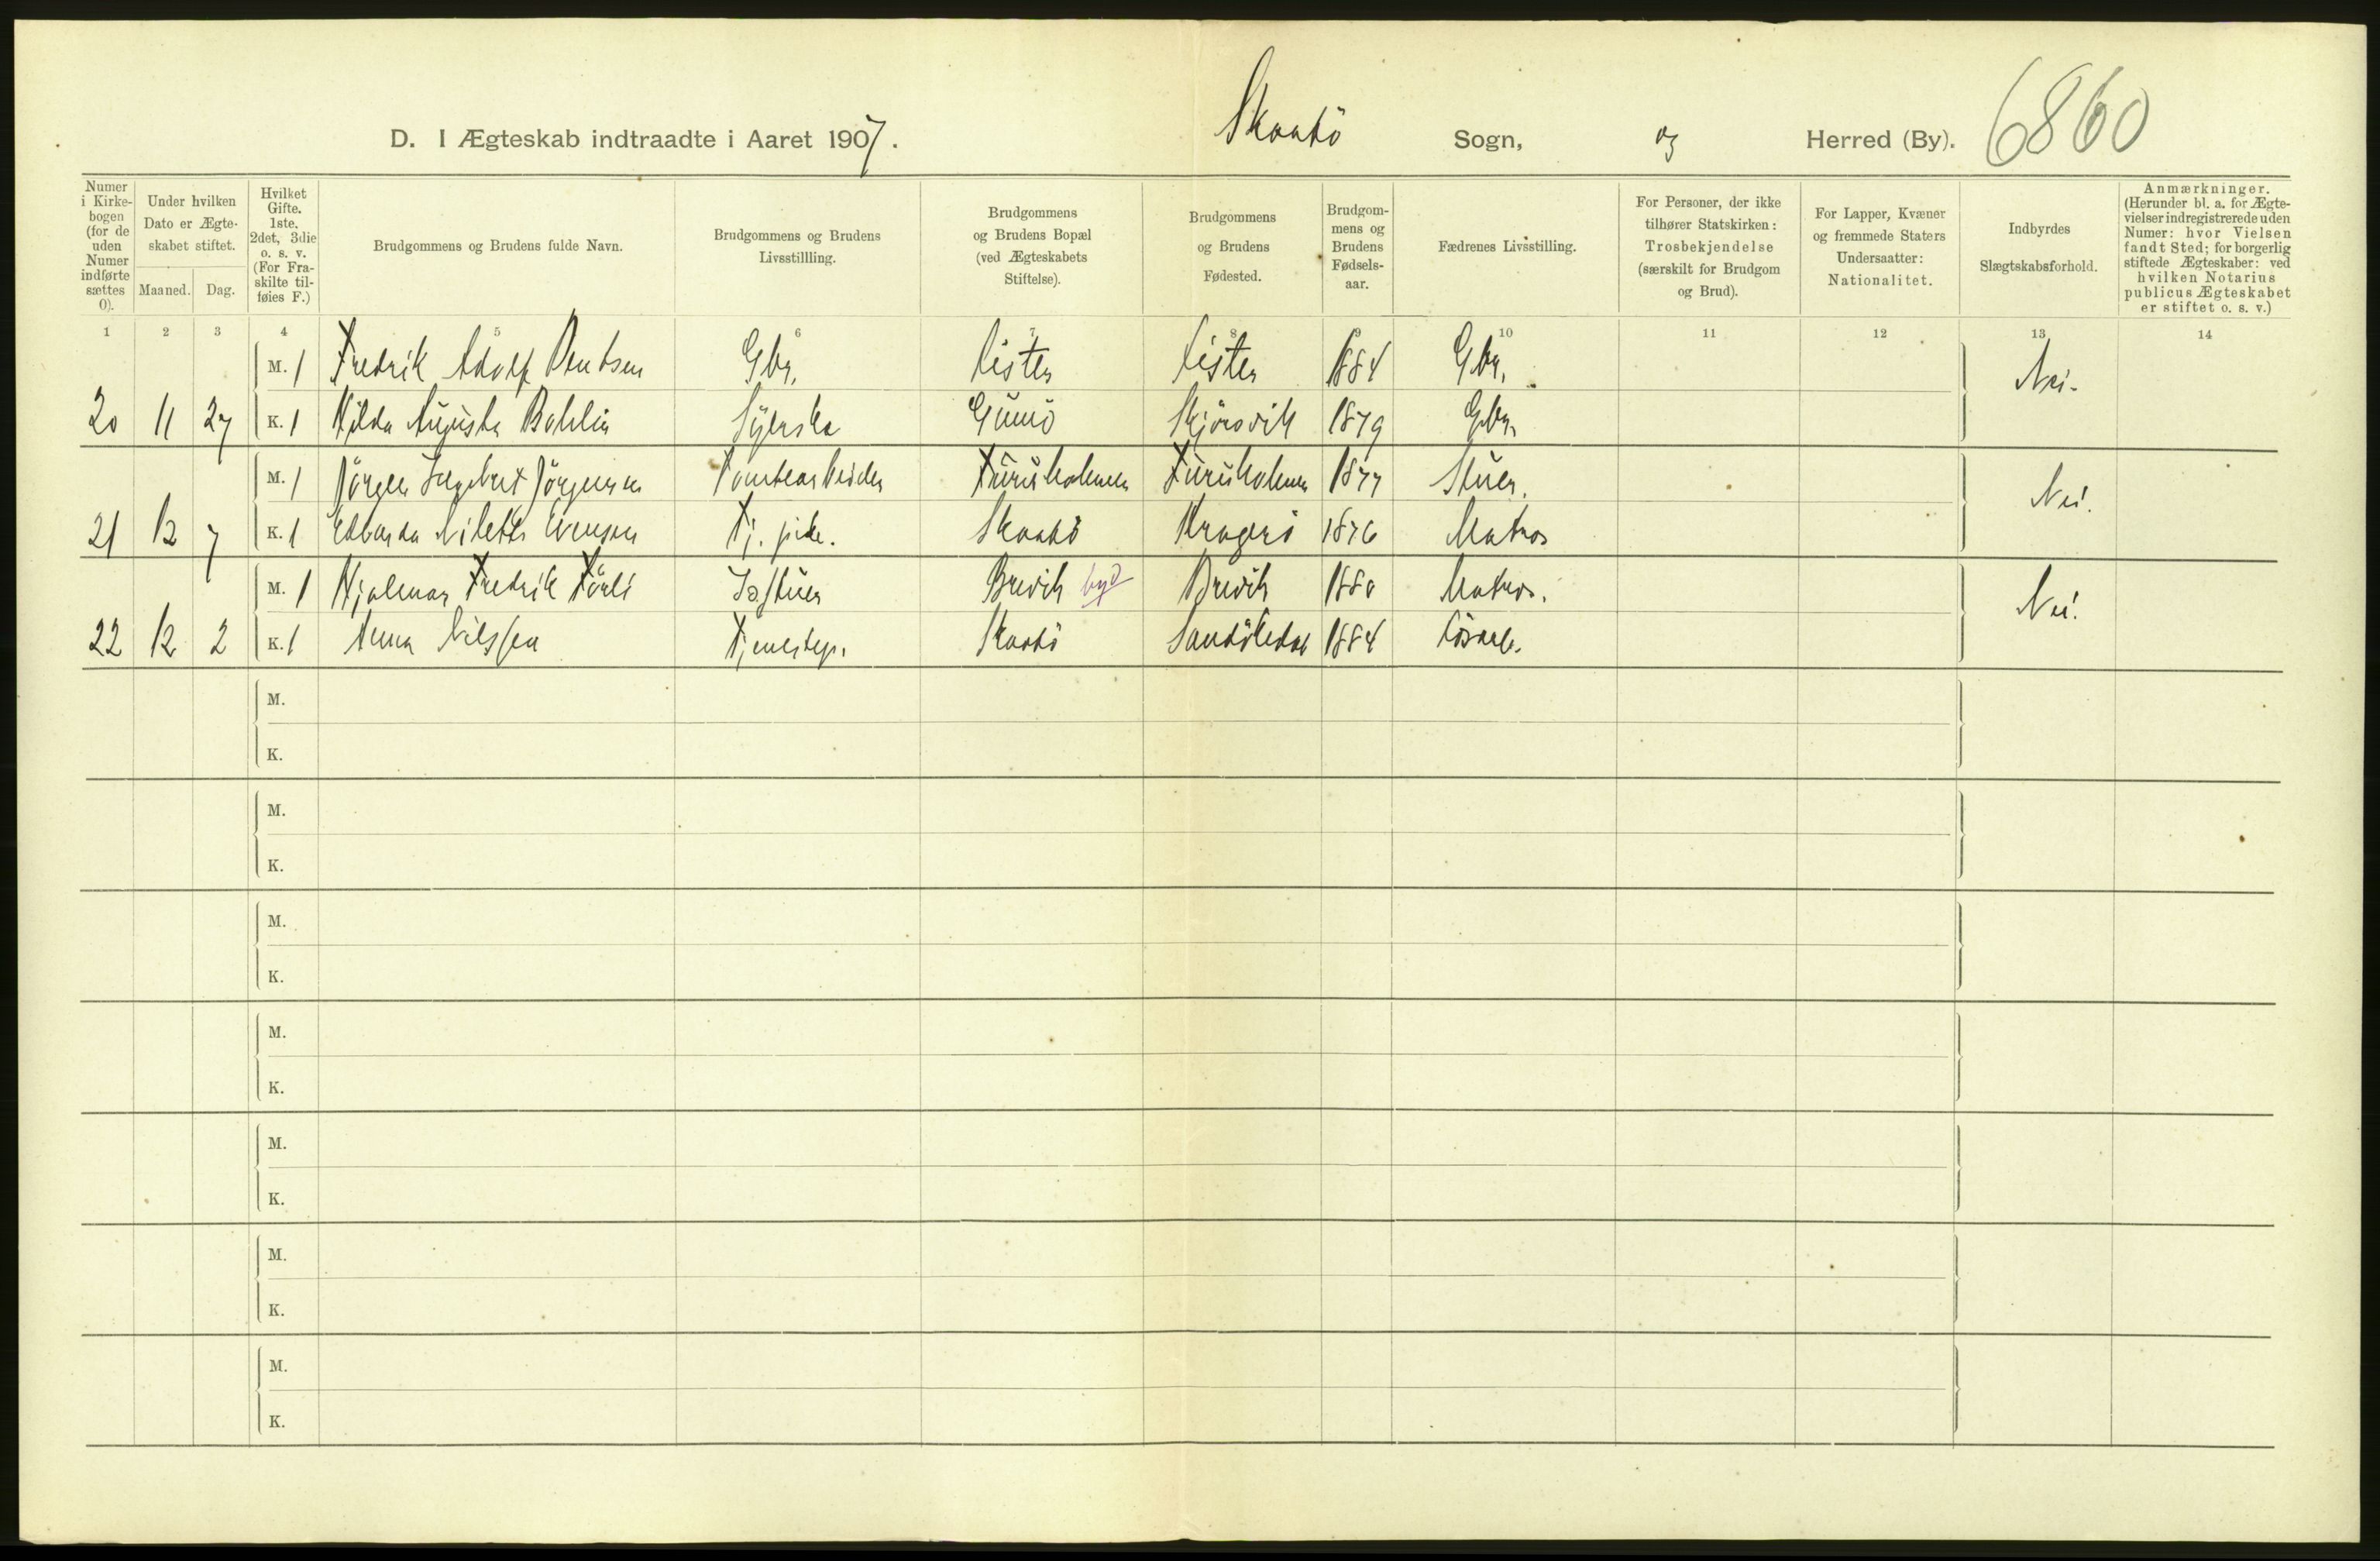 D. I Ægteskab indtraadte i Aaret 1907. Skaatö Sogn, og Herred (By). 6860
Numer i Kirkebogen (for de uden Numer indførte sættes 0).
Under hvilken Dato er Ægteskabet stiftet.
Maaned. Dag.
Hvilket Gifte. 1ste, 2det, 3die o. s. v. (For Fraskilte tilføies F.)
Brudgommens og Brudens fulde Navn.
Brudgommens og Brudens Livsstillling.
Brudgommens og Brudens Bopæl (ved Ægteskabets Stiftelse).
Brudgommens og Brudens Fødested.
Brudgommens og Brudens Fødselsaar.
Fædrenes Livsstilling.
For Personer, der ikke tilhører Statskirken: Trosbekjendelse (særskilt for Brudgom og Brud).
For Lapper, Kvæner og fremmede Staters Undersaatter: Nationalitet.
Indbyrdes Slægtskabsforhold.
Anmærkninger. (Herunder bl. a. for Ægtevielser indregistrerede uden Numer: hvor Vielsen fandt Sted; for borgerlig stiftede Ægteskaber: ved hvilken Notarius publicus Ægteskabet er stiftet o. s. v.)
1 2 3 4 5 6 7 8 9 10 11 12 13 14
M. 1 Fredrik Adolf Gbr. Lister Lister 1884 Gbr. Nei.
20 11 27 K. 1 Hilda Augusta Syerske Gumö 1879 Gbr.
M. 1 Jörgen Ingebret Jörgensen Tomtearbeider Furuholmen Furuholmen 1877 Stuer. Nei.
21 12 7 K. 1 Tj. pike. Skaatö Kragerö 1876 Matros
M. 1 Hjalmar Fredrik Brevik by Brevik 1880 Matros. Nei.
22 12 2 K. 1 Anna Nilssen Tjenestep. Skaatö Sandökedal 1884 Lösarb.
M.
K.
M.
K.
M.
K.
M.
K.
M.
K.
M.
K.
M.
K.